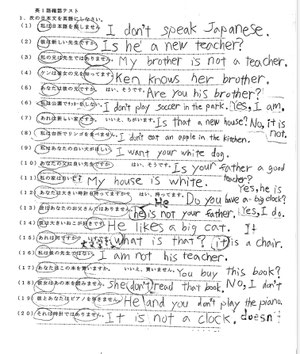 英1語確認テスト
1、次の日本文を英語にしなさい。
(1) 私は日本語を話しません I don't speak Japanese.
(2) 彼は新しい先生ですか Is he a new teacher?
(3) 私の兄は先生ではありません My brother is not a teacher.
(4) ケンは彼女の兄を知ってます Ken knows her brother.
(5) あなたは彼の兄ですか。 はい、そうです。 Are you his brother?
(6) 私は公園でサッカーをしません I don't play soccer in the park. Yes, I am.
(7) あれは新しい家ですか。 いいえ、ちがいます。 Is that a new house? No, it is not.
(8) 私は台所でリンゴを食べません I don't eat an apple in the kitchen.
(9) 私はあなたの白い犬がほしい I want your white dog.
(10) あなたの父は良い先生ですか。 はい、そうです。 Is your father a good teacher?
(11) 私の家は白いです My house is white. Yes, he is
(12) あなたは大きい時計を持ってますか はい、持ってます。 Do you have a big clock?
(13) 彼はあなたのお父さんではありません He is not your father. Yes, I do.
(14) 彼は大きいねこが好きです He likes a big cat. It
(15) あれは何ですか what is that? it is a chair.
(16) 私は彼の先生ではない I am not his teacher.
(17) あなたはこの本を買いますか。 いいえ、買いません。 You buy this book?
(18) 彼女はあの本を読みません。 She don't read that book. No, I don't
(19) 彼とあなたはピアノを弾きません He and you don't play the piano.
(20) それは時計ではありません It is not a clock. doesn't